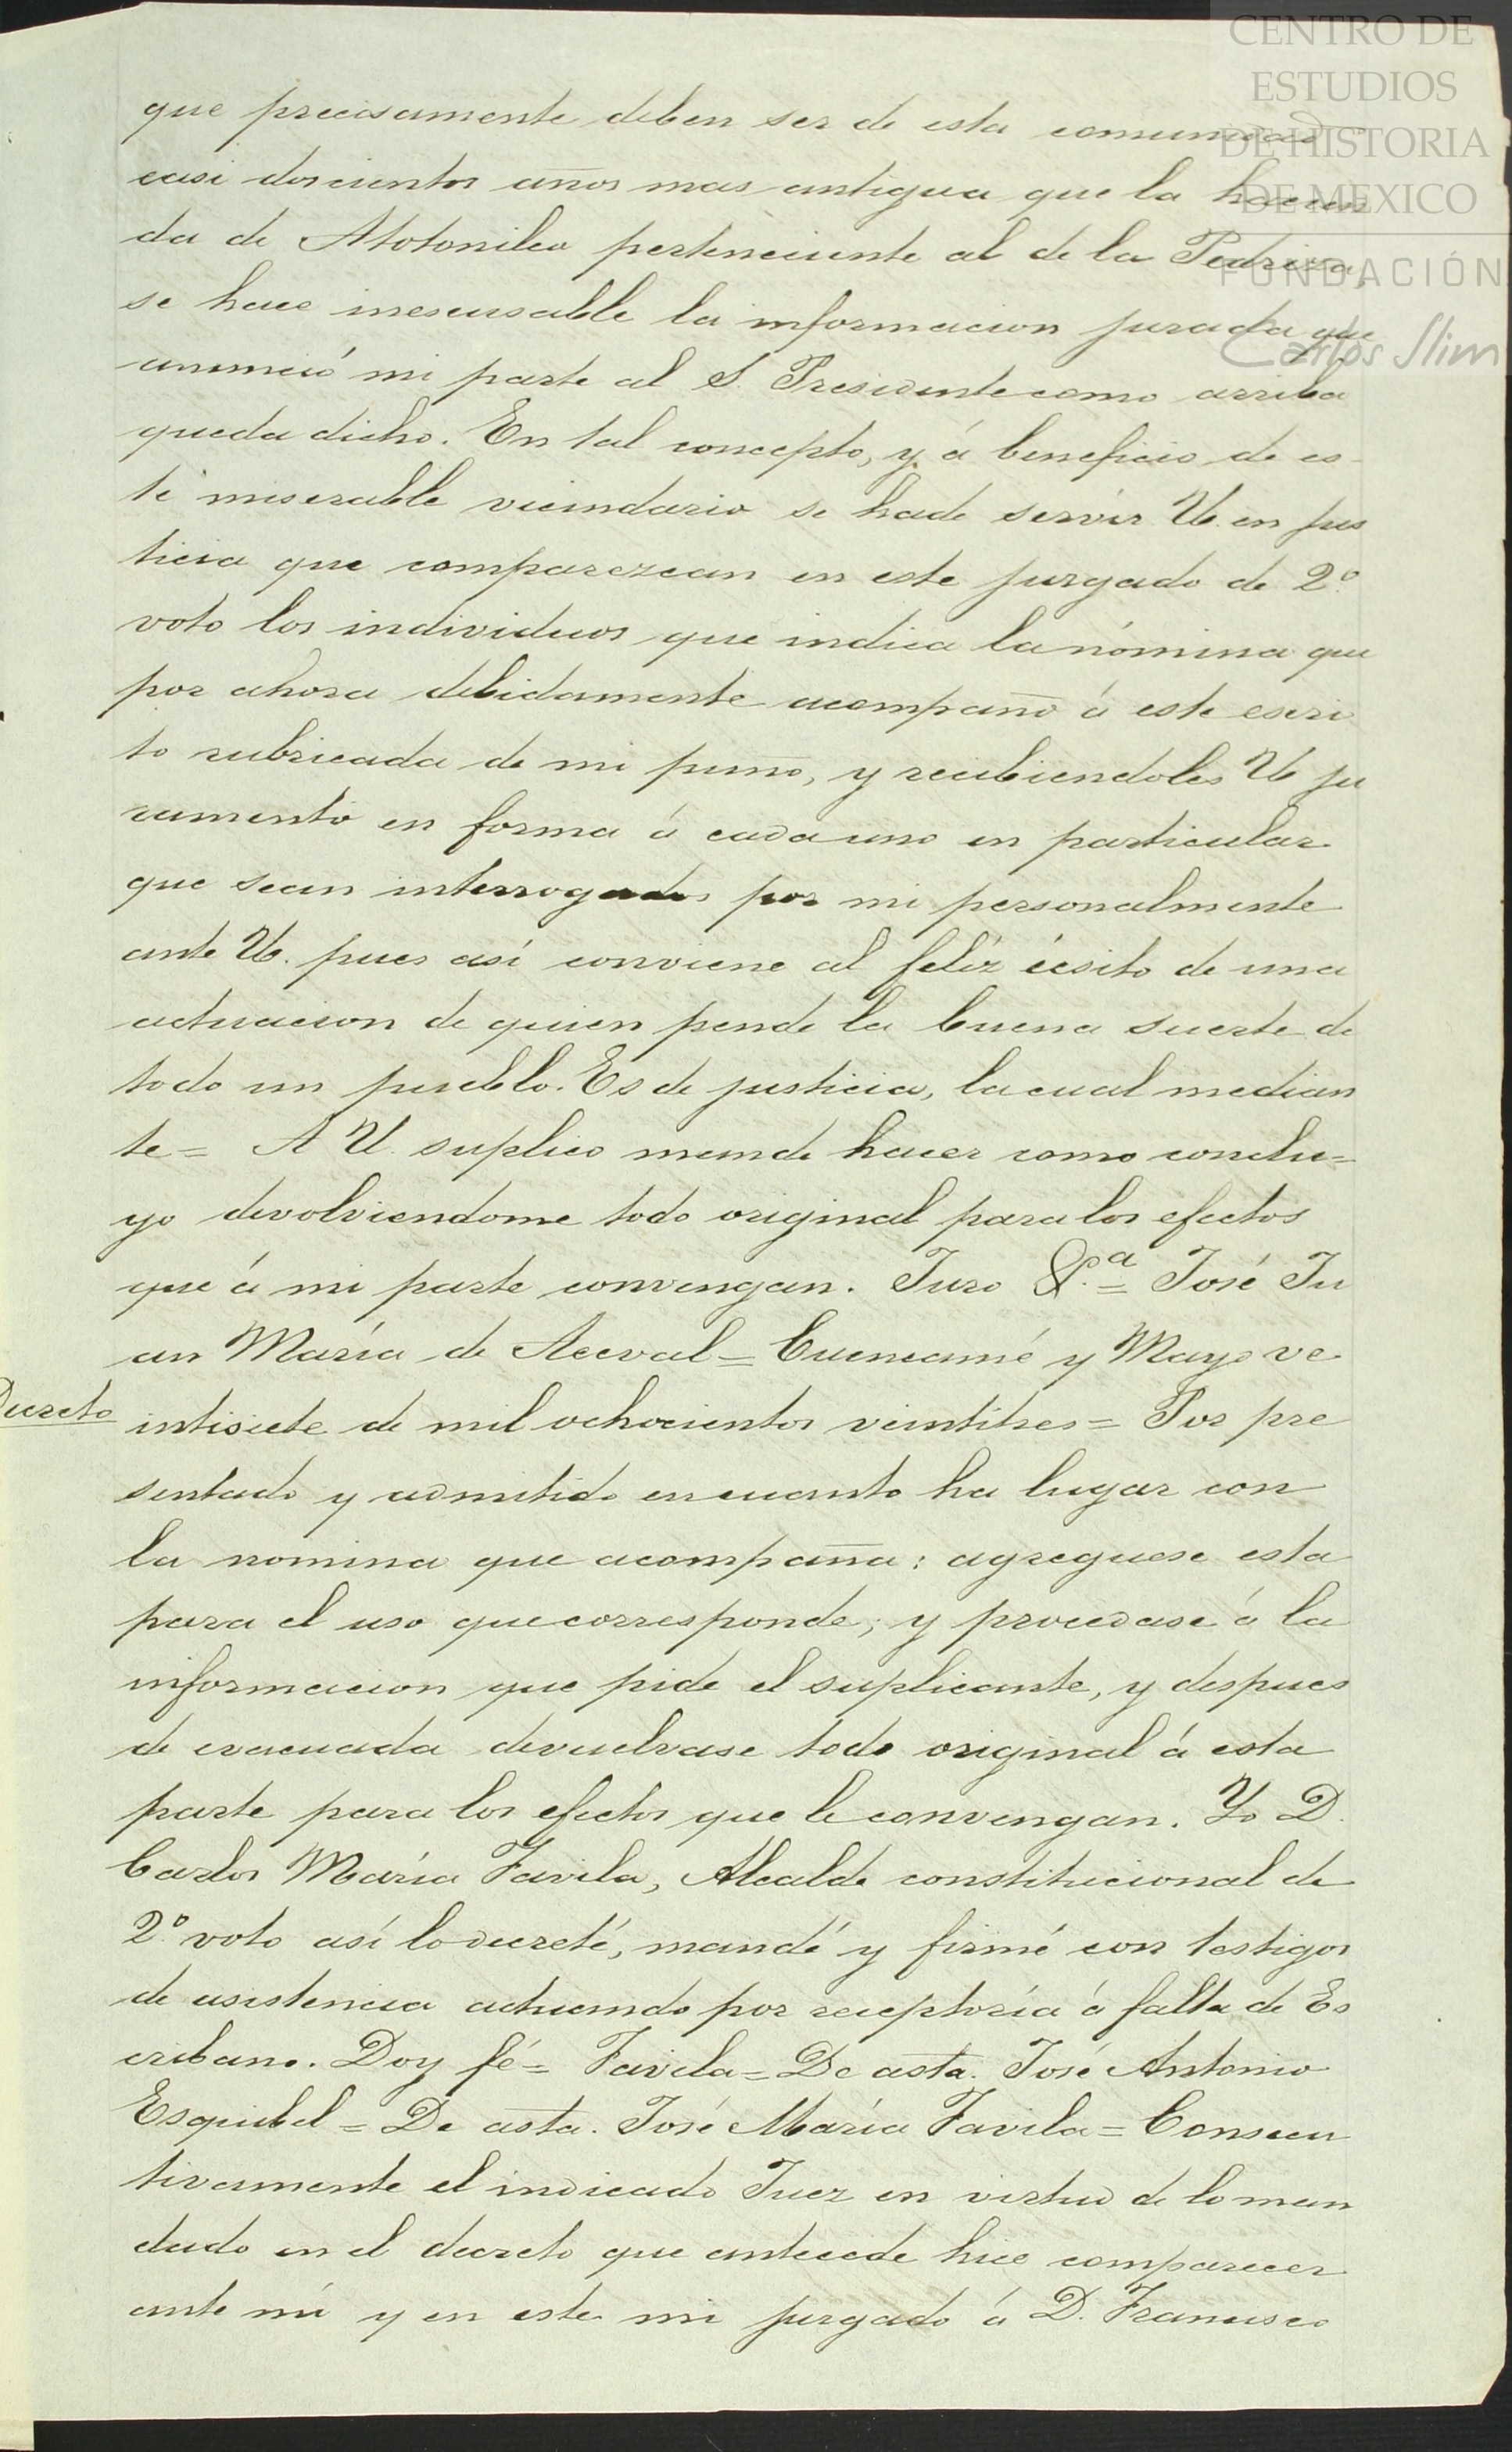 CENTRO DE
ESTUDIOS
DE HISTORIA
DE MEXICO
FUNDACIÓN
Carlos Slim
que precisamente deben ser de esta comunidad
casi doscientos años mas antigua que la hacien
da de Atotonilco perteneciente al de la Pedriza,
se hace inescusable la informacion jurada que
anunció mi parte al S. Presidente como arriba
queda dicho. En tal concepto, y á beneficio de es-
te miserable vecindario se hade servir V. en jus
ticia que comparezcan en este juzgado de 2º
voto los individuos que indica la nómina que
por ahora debidamente acompaño á este escri
to rubricada de mi puño, y recibiendoles V ju
ramento en forma á cada uno en particular
que sean interrogados por mi personalmente
ante V. pues así conviene al felíz écsito de una
actuacion de quien pende la buena suerte de
todo un pueblo. Es de justicia, la cual median
te= A U. suplico mande hacer como conclu=
yo devolviendome todo original para los efectos
que á mi parte convengan. Juro &.ª= José Ju
an María de Aceval= Cuencamé y Mayo ve
Decreto
intisiete de mil ochocientos veintitres= Por pre
sentado y admitido en cuanto ha lugar con
la nomina que acompaña: agreguese esta
para el uso que corresponde; y procedase á la
informacion que pide el suplicante, y despues
de evacuada devuelvase todo original á esta
parte para los efectos que le convengan. Yo D.
Carlos María Favila, Alcalde constitucional de
2º voto así lo decreté, mandé y firmé con testigos
de asistencia actuando por receptoría á falta de Es
cribano. Doy fé= Favila= De asta. José Antonio
Esquibel= De asta. José María Favila= Consecu
tivamente el indicado Juez en virtud de lo man
dado en el decreto que antecede hice comparecer
ante mí y en este mi juzgado á D. Francisco